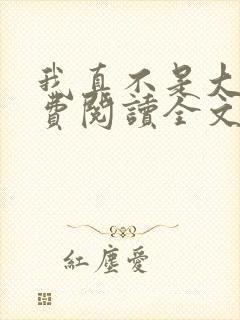 我真不是大
費閱讀全文
紅塵愛